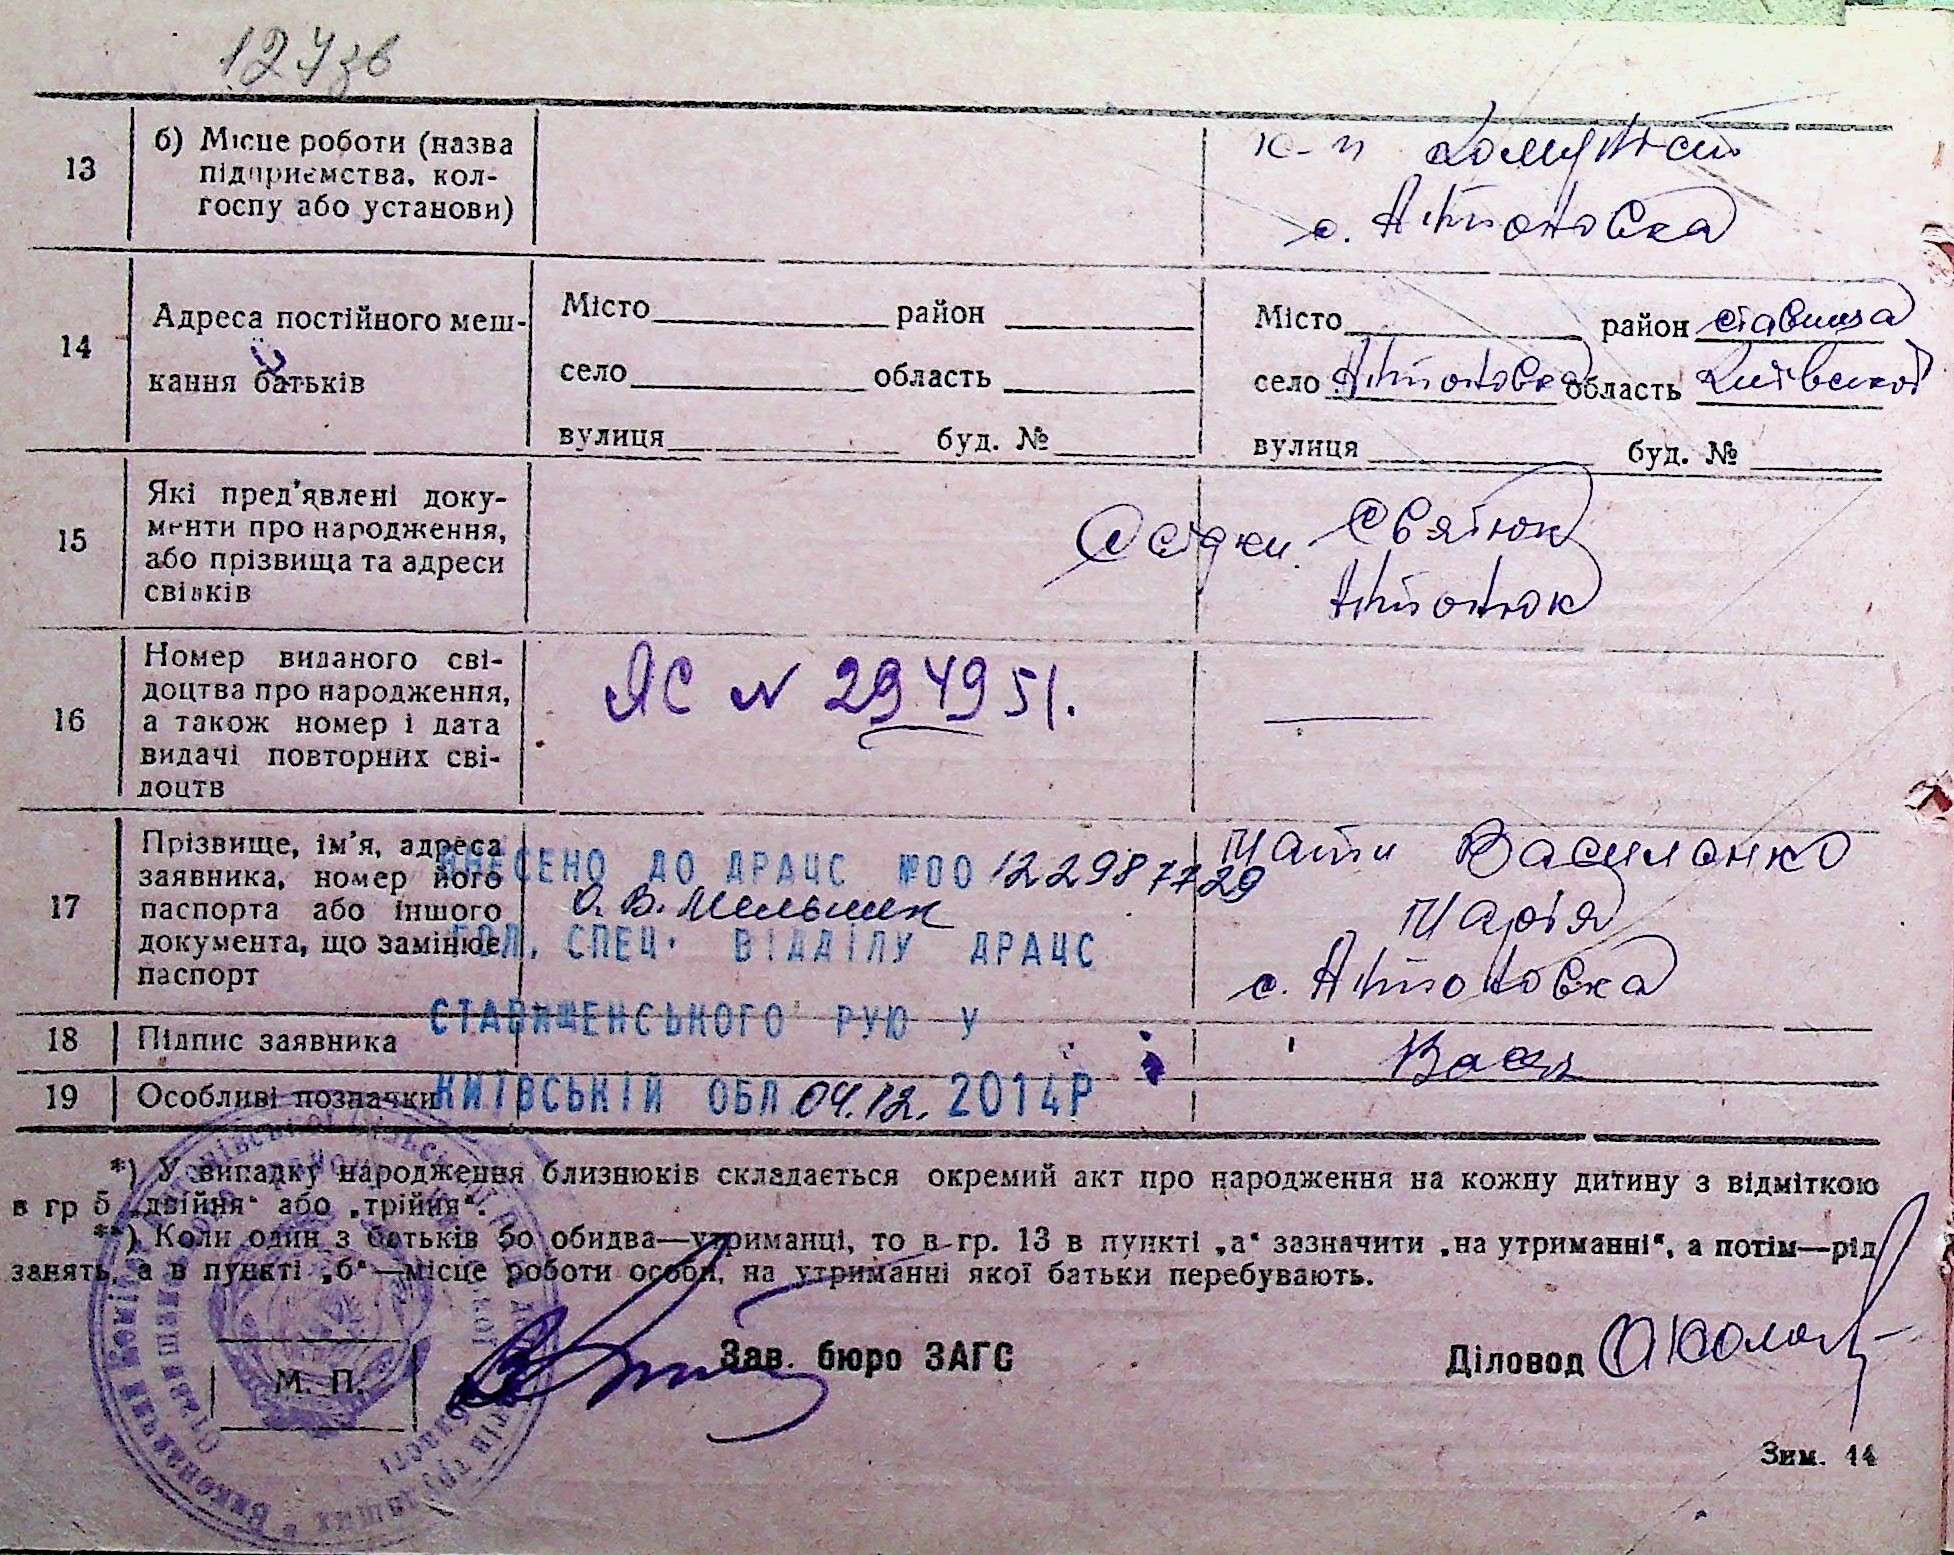 127зв
13 б) Місце роботи (назва підприємства, колгоспу або установи)
к-п Комуніст
с. Антоновка
14 Адреса постійного мешкання батьків
Місто район
село область
вулиця буд. №
Місто район Ставища
село Антоновка область Київської
вулиця буд. №
15 Які пред'явлені документи про народження, або прізвища та адреси свідків
Свідки. Святюк
Антонюк
16 Номер виданого свідоцтва про народження, а також номер і дата видачі повторних свідоцтв
ЯС N 294951.
17 Прізвище, ім'я, адреса заявника, номер його паспорта або іншого документа, що замінює паспорт
ВНЕСЕНО ДО ДРАЦС №00 122987729
О. В. Мельник
ГОЛ. СПЕЦ. ВІДДІЛУ ДРАЦС
СТАВИЩЕНСЬКОГО РУЮ У
КИЇВСЬКІЙ ОБЛ 04.12. 2014Р
Мати Василенко
Марія
с. Антоновка
18 Підпис заявника
Вася
19 Особливі позначки
*) У випадку народження близнюків складається окремий акт про народження на кожну дитину з відміткою
в гр 5 „двійня“ або „трійня“.
**) Коли один з батьків бо обидва—утриманці, то в гр. 13 в пункті „а“ зазначити „на утриманні“, а потім—рід
занять, а в пункті „б“—місце роботи особи, на утриманні якої батьки перебувають.
М. П.
Зав. бюро ЗАГС
Діловод
Зим. 14